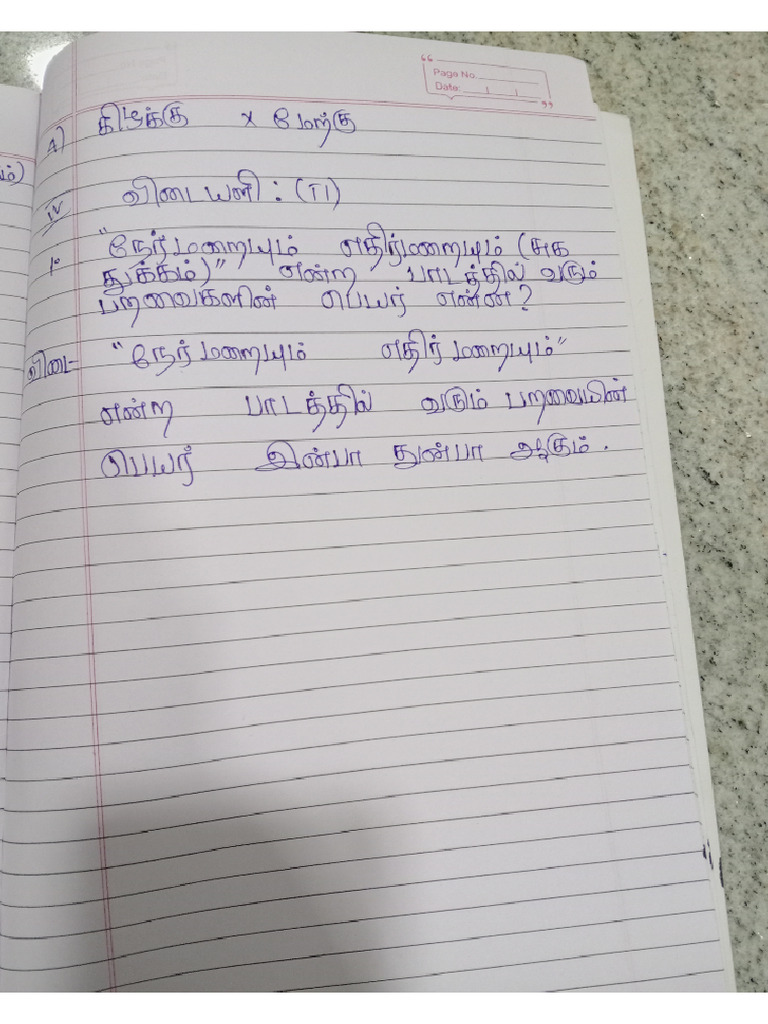 Page No.
Date:
4) கிழக்கு x மேற்கு
IV விடையளி : (T1)
1. "நேர்மறையும் எதிர்மறையும் (சுக
துக்கம்)" என்ற பாடத்தில் வரும்
பறவைகளின் பெயர் என்ன?
விடை- "நேர்மறையும் எதிர்மறையும்"
என்ற பாடத்தில் வரும் பறவையின்
பெயர் இன்பா துன்பா ஆகும்.